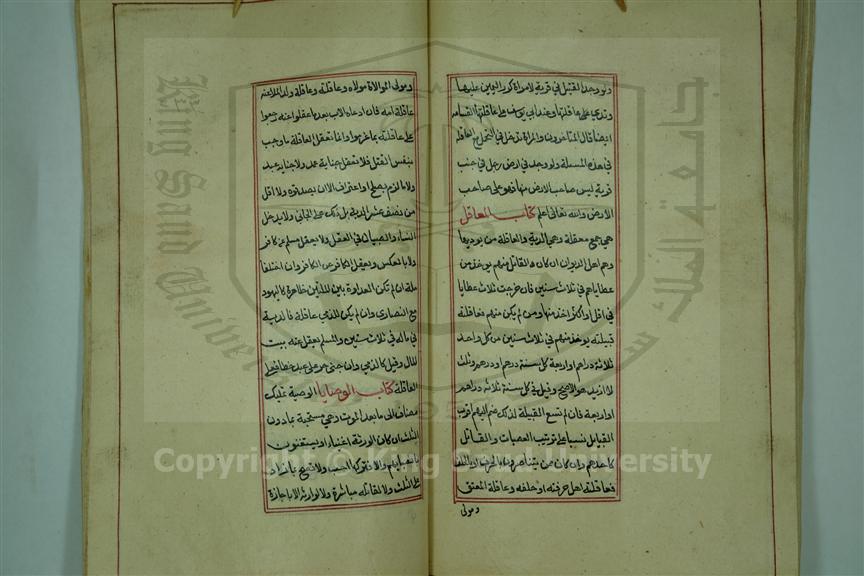 ولو وجد القتيل في قرية لامراة كرر اليمين عليها
وتدي على عاقلتها وعند ابي يوسف على عاقلتها القسامة
ايضا قال المتاخرون والمراة تدخل في التحمل مع العاقلة
في هذه المسئلة ولو وجد في ارض رجل في جنب
قرية ليس صاحب الارض منها فهو على صاحب
الارض والله تعالى اعلم كتاب المعاقل
هي جمع معقلة وهي الدية والعاقلة من يوديها
وهم اهل الديوان ان كان القاتل منهم يوخذ من
عطاياهم في ثلاث سنين فان خرجت ثلاث عطايا
في اقل او اكثر اخذ منها ومن لم يكن منهم فعاقلته
قبيلته يوخذ منهم في ثلاث سنين من كل واحد
ثلاثة دراهم او اربعة كل سنة درهم او درهم وثلث
لا ازيد هو الاصح وقيل في كل سنة ثلاثة دراهم
او اربعة فان لم تسع القبيلة لذلك ضم اليهم اقرب
القبايل نسبا على ترتيب العصبات والقاتل
كاحدهم وان كان ممن يتناصرون بالحرف او بالحلف
فعاقلته اهل حرفته او حلفه وعاقلة المعتق
ومولى
ومولى الموالاة مولاه وعاقلته وعاقلة ولد الملاعنة
عاقلة امه فان ادعاه الاب بعد ما عقلوا عنه رجعوا
على عاقلته بما غرموا وانما تعقل العاقلة ما وجب
بنفس القتل فلا تعقل جناية عمد ولا جناية عبد
ولا ما لزم بصلح او اعتراف الا ان يصدقوه ولا اقل
من نصف عشر الدية بل ذلك على الجاني ولا يدخل
النساء والصبيان في العقل ولا يعقل مسلم عن كافر
ولا بالعكس ويعقل الكافر عن الكافر وان اختلفا
ملة ان لم تكن العداوة بين الملتين ظاهرة كاليهود
مع النصارى وان لم يكن للذمي عاقلة فالدية
في ماله في ثلاث سنين والمسلم يعقل عنه بيت
المال وقيل كالذمي وان جنى حر على عبد خطا فعلى
العاقلة كتاب الوصايا الوصية تمليك
مضاف الى ما بعد الموت وهي مستحبة بما دون
الثلث ان كان الورثة اغنياء او يستغنون
بانصبائهم والا فتركها احب ولا تصح بما زاد
على الثلث ولا لقاتله مباشرة ولا لوارثه الا باجازة
King Saud University
1957
Copyright © King Saud University